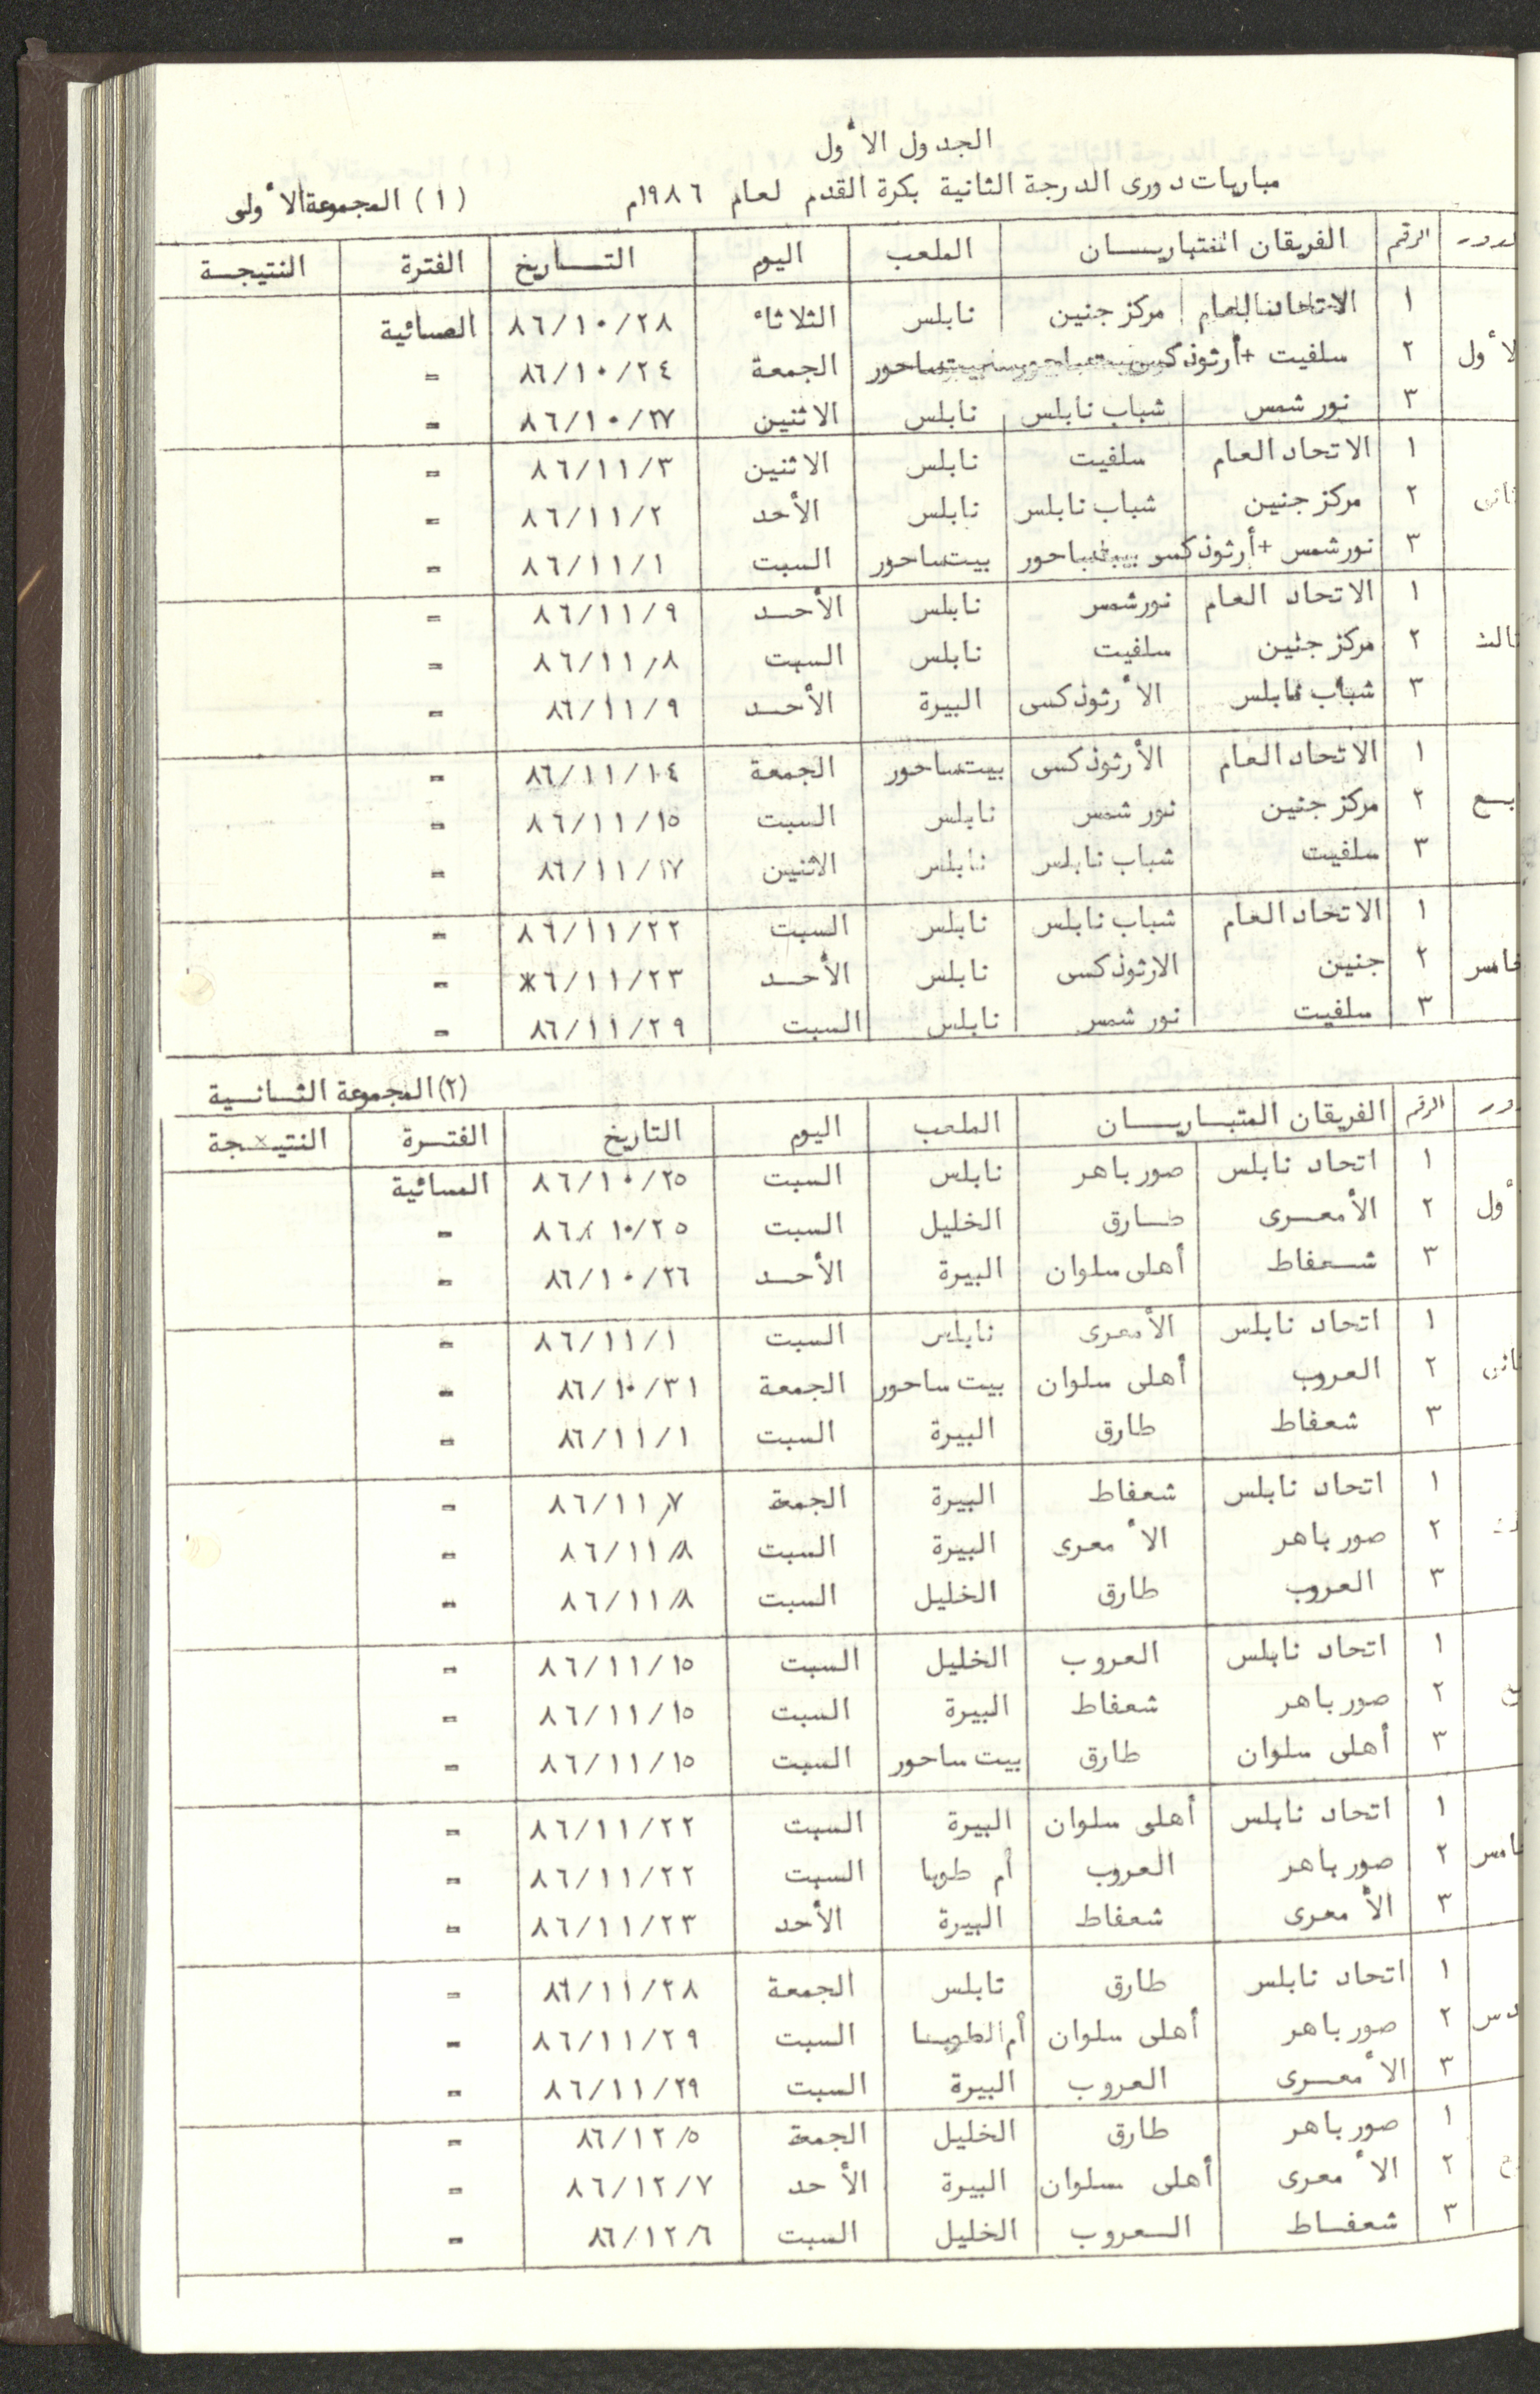 الجدول الأول
مباريات دورى الدرجة الثانية بكرة القدم لعام ١٩٨٦م
(١) المجموعة الأولى
الرقم الفريقان المتباريان الملعب اليوم التاريخ الفترة النتيجة
١ الاتحاد العام مركز جنين نابلس الثلاثاء ٨٦/١٠/٢٨ المسائية
٢ سلفيت + أرثوذكس بيت ساحور الجمعة ٨٦/١٠/٢٤ =
٣ نور شمس شباب نابلس نابلس الاثنين ٨٦/١٠/٢٧ =
١ الاتحاد العام سلفيت نابلس الاثنين ٨٦/١١/٣ =
٢ مركز جنين شباب نابلس نابلس الأحد ٨٦/١١/٢ =
٣ نور شمس + أرثوذكسى بيت ساحور بيت ساحور السبت ٨٦/١١/١ =
١ الاتحاد العام نور شمس نابلس الأحد ٨٦/١١/٩ =
٢ مركز جنين سلفيت نابلس السبت ٨٦/١١/٨ =
٣ شباب نابلس الأرثوذكسى البيرة الأحد ٨٦/١١/٩ =
١ الاتحاد العام الأرثوذكسى بيت ساحور الجمعة ٨٦/١١/١٤ =
٢ مركز جنين نور شمس نابلس السبت ٨٦/١١/١٥ =
٣ سلفيت شباب نابلس نابلس الاثنين ٨٦/١١/١٧ =
١ الاتحاد العام شباب نابلس نابلس السبت ٨٦/١١/٢٢ =
٢ جنين الارثوذكسى نابلس الأحد *٦/١١/٢٣ =
٣ سلفيت نور شمس نابلس السبت ٨٦/١١/٢٩ =
(٢) المجموعة الثانية
الرقم الفريقان المتباريان الملعب اليوم التاريخ الفترة النتيجة
١ اتحاد نابلس صور باهر نابلس السبت ٨٦/١٠/٢٥ المسائية
٢ الأمعرى طارق الخليل السبت ٨٦/١٠/٢٥ =
٣ شعفاط أهلى سلوان البيرة الأحد ٨٦/١٠/٢٦ =
١ اتحاد نابلس الأمعرى نابلس السبت ٨٦/١١/١ =
٢ العروب أهلى سلوان بيت ساحور الجمعة ٨٦/١٠/٣١ =
٣ شعفاط طارق البيرة السبت ٨٦/١١/١ =
١ اتحاد نابلس شعفاط البيرة الجمعة ٨٦/١١/٧ =
٢ صور باهر الأمعرى البيرة السبت ٨٦/١١/٨ =
٣ العروب طارق الخليل السبت ٨٦/١١/٨ =
١ اتحاد نابلس العروب الخليل السبت ٨٦/١١/١٥ =
٢ صور باهر شعفاط البيرة السبت ٨٦/١١/١٥ =
٣ أهلى سلوان طارق بيت ساحور السبت ٨٦/١١/١٥ =
١ اتحاد نابلس أهلى سلوان البيرة السبت ٨٦/١١/٢٢ =
٢ صور باهر العروب أم طوبا السبت ٨٦/١١/٢٢ =
٣ الأمعرى شعفاط البيرة الأحد ٨٦/١١/٢٣ =
١ اتحاد نابلس طارق نابلس الجمعة ٨٦/١١/٢٨ =
٢ صور باهر أهلى سلوان أم الطوبا السبت ٨٦/١١/٢٩ =
٣ الأمعرى العروب البيرة السبت ٨٦/١١/٢٩ =
١ صور باهر طارق الخليل الجمعة ٨٦/١٢/٥ =
٢ الأمعرى أهلى سلوان البيرة الأحد ٨٦/١٢/٧ =
٣ شعفاط العروب الخليل السبت ٨٦/١٢/٦ =